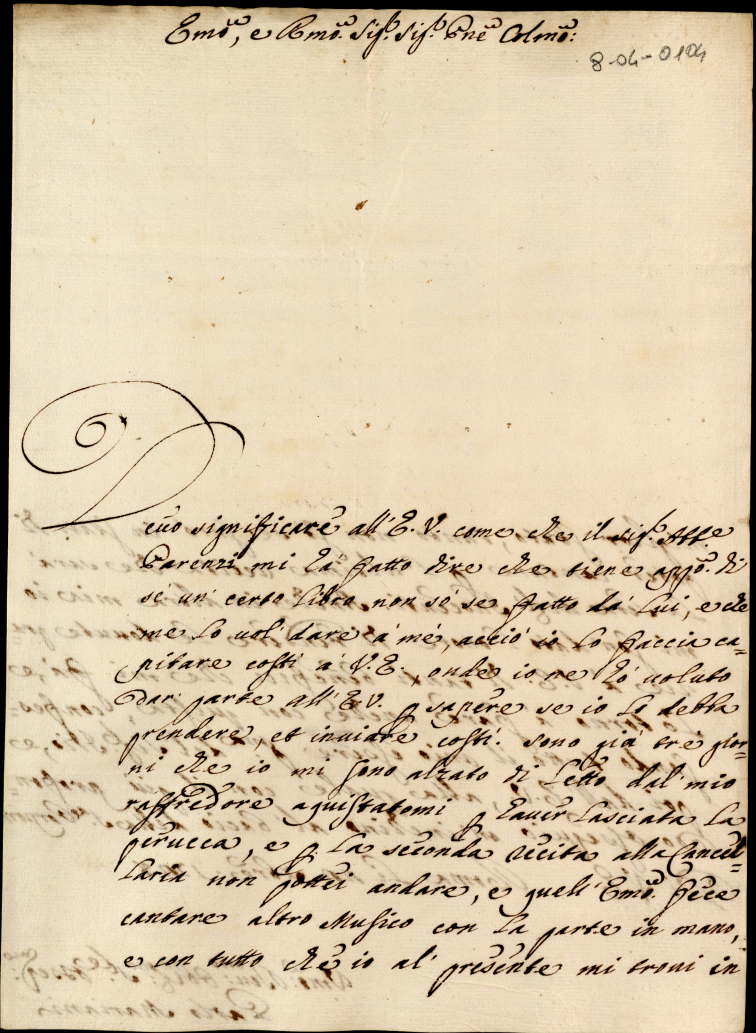 Emo͂, e Rmo͂. Sig.r Sig.r Pne͂ Colmo͂:
8-04-0104
Deuo significare all'E. V. come che il Sig.r Abb.e
Parenzi mi hà fatto dire che tiene app.o di
sé un' certo libro non só se fatto dà lui, e che
me lo uol' dare à mé, acció io lo faccia ca=
pitare costì à V. E., onde io ne hò uoluto
dar' parte all'E. V. p sapere se io lo debba
prendere, et inuiare costì. Sono già tre gior=
ni che io mi sono alzato di letto dal' mio
raffredore aquistatomi p hauer lasciata la
perucca, e p la seconda recita alla Cancel=
laria non pottei andare, e quell'Emo͂. fece
cantare altro Musico con la parte in mano,
e con tutto che io al' presente mi troui in